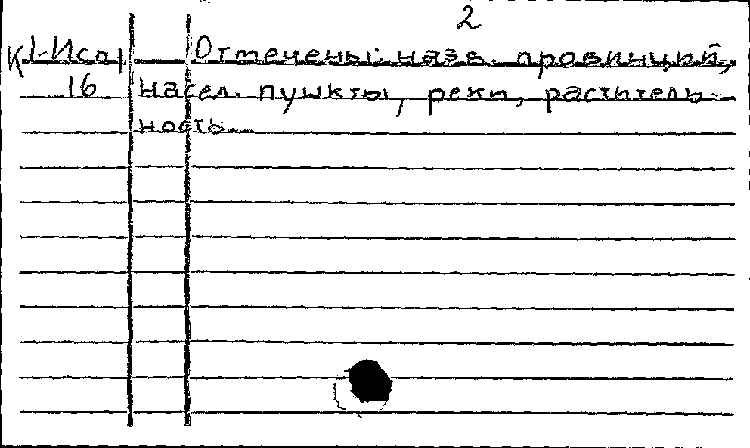 2
К 1-Исп Отмечены: назв. провинций,
16 насел. пункты, реки, раститель-
ность.